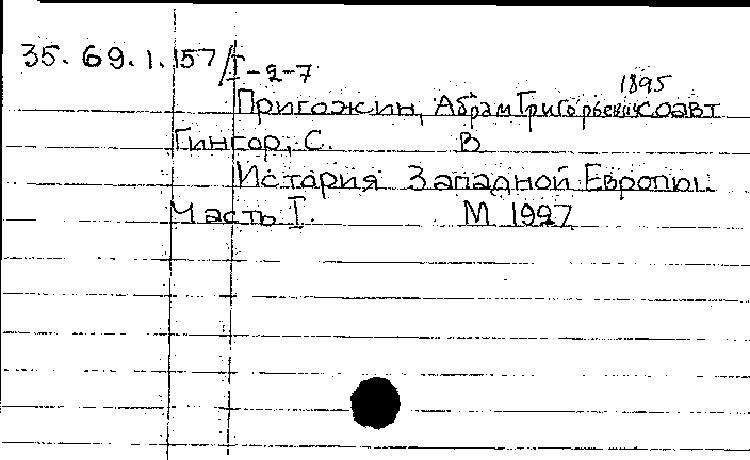 35.69.1.157/I-2-7
1895
Пригожин, Абрам Григорьевич соавт
Гингор, С. В
История Западной Европы.
Часть I. М 1927